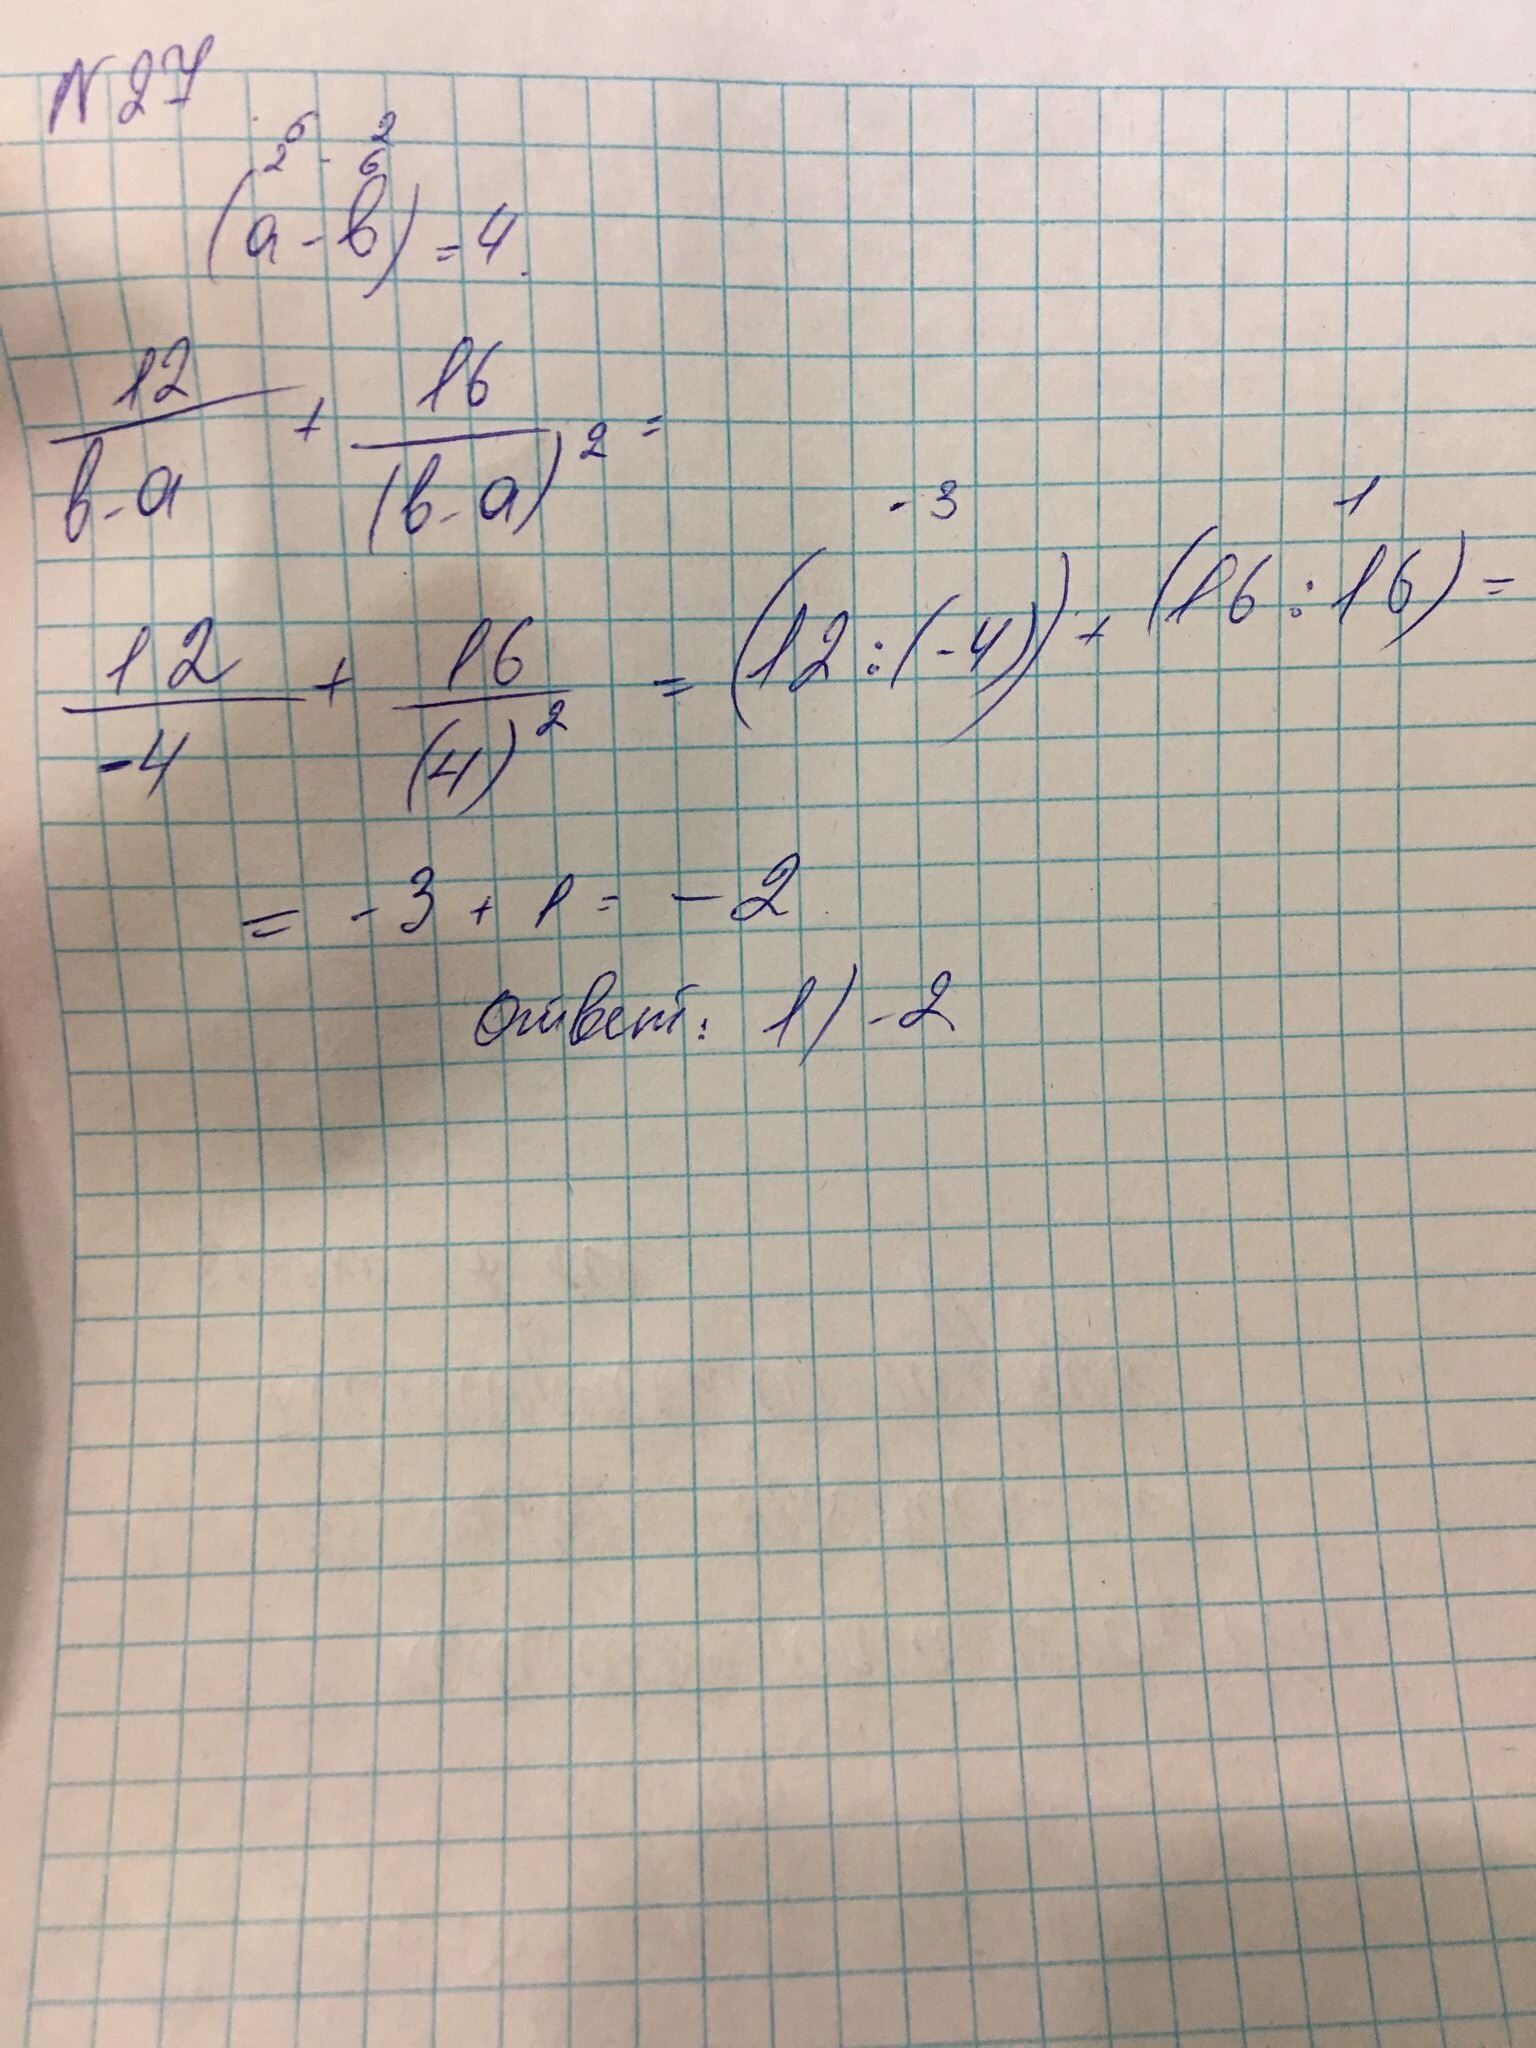 N 27
6 2
2 - 6
(a - b) = 4.
12/(b - a) + 16/(b - a)² =
-3 1
12/-4 + 16/(4)² = (12 : (-4)) + (16 : 16) =
= -3 + 1 = -2
Ответ: 1) -2